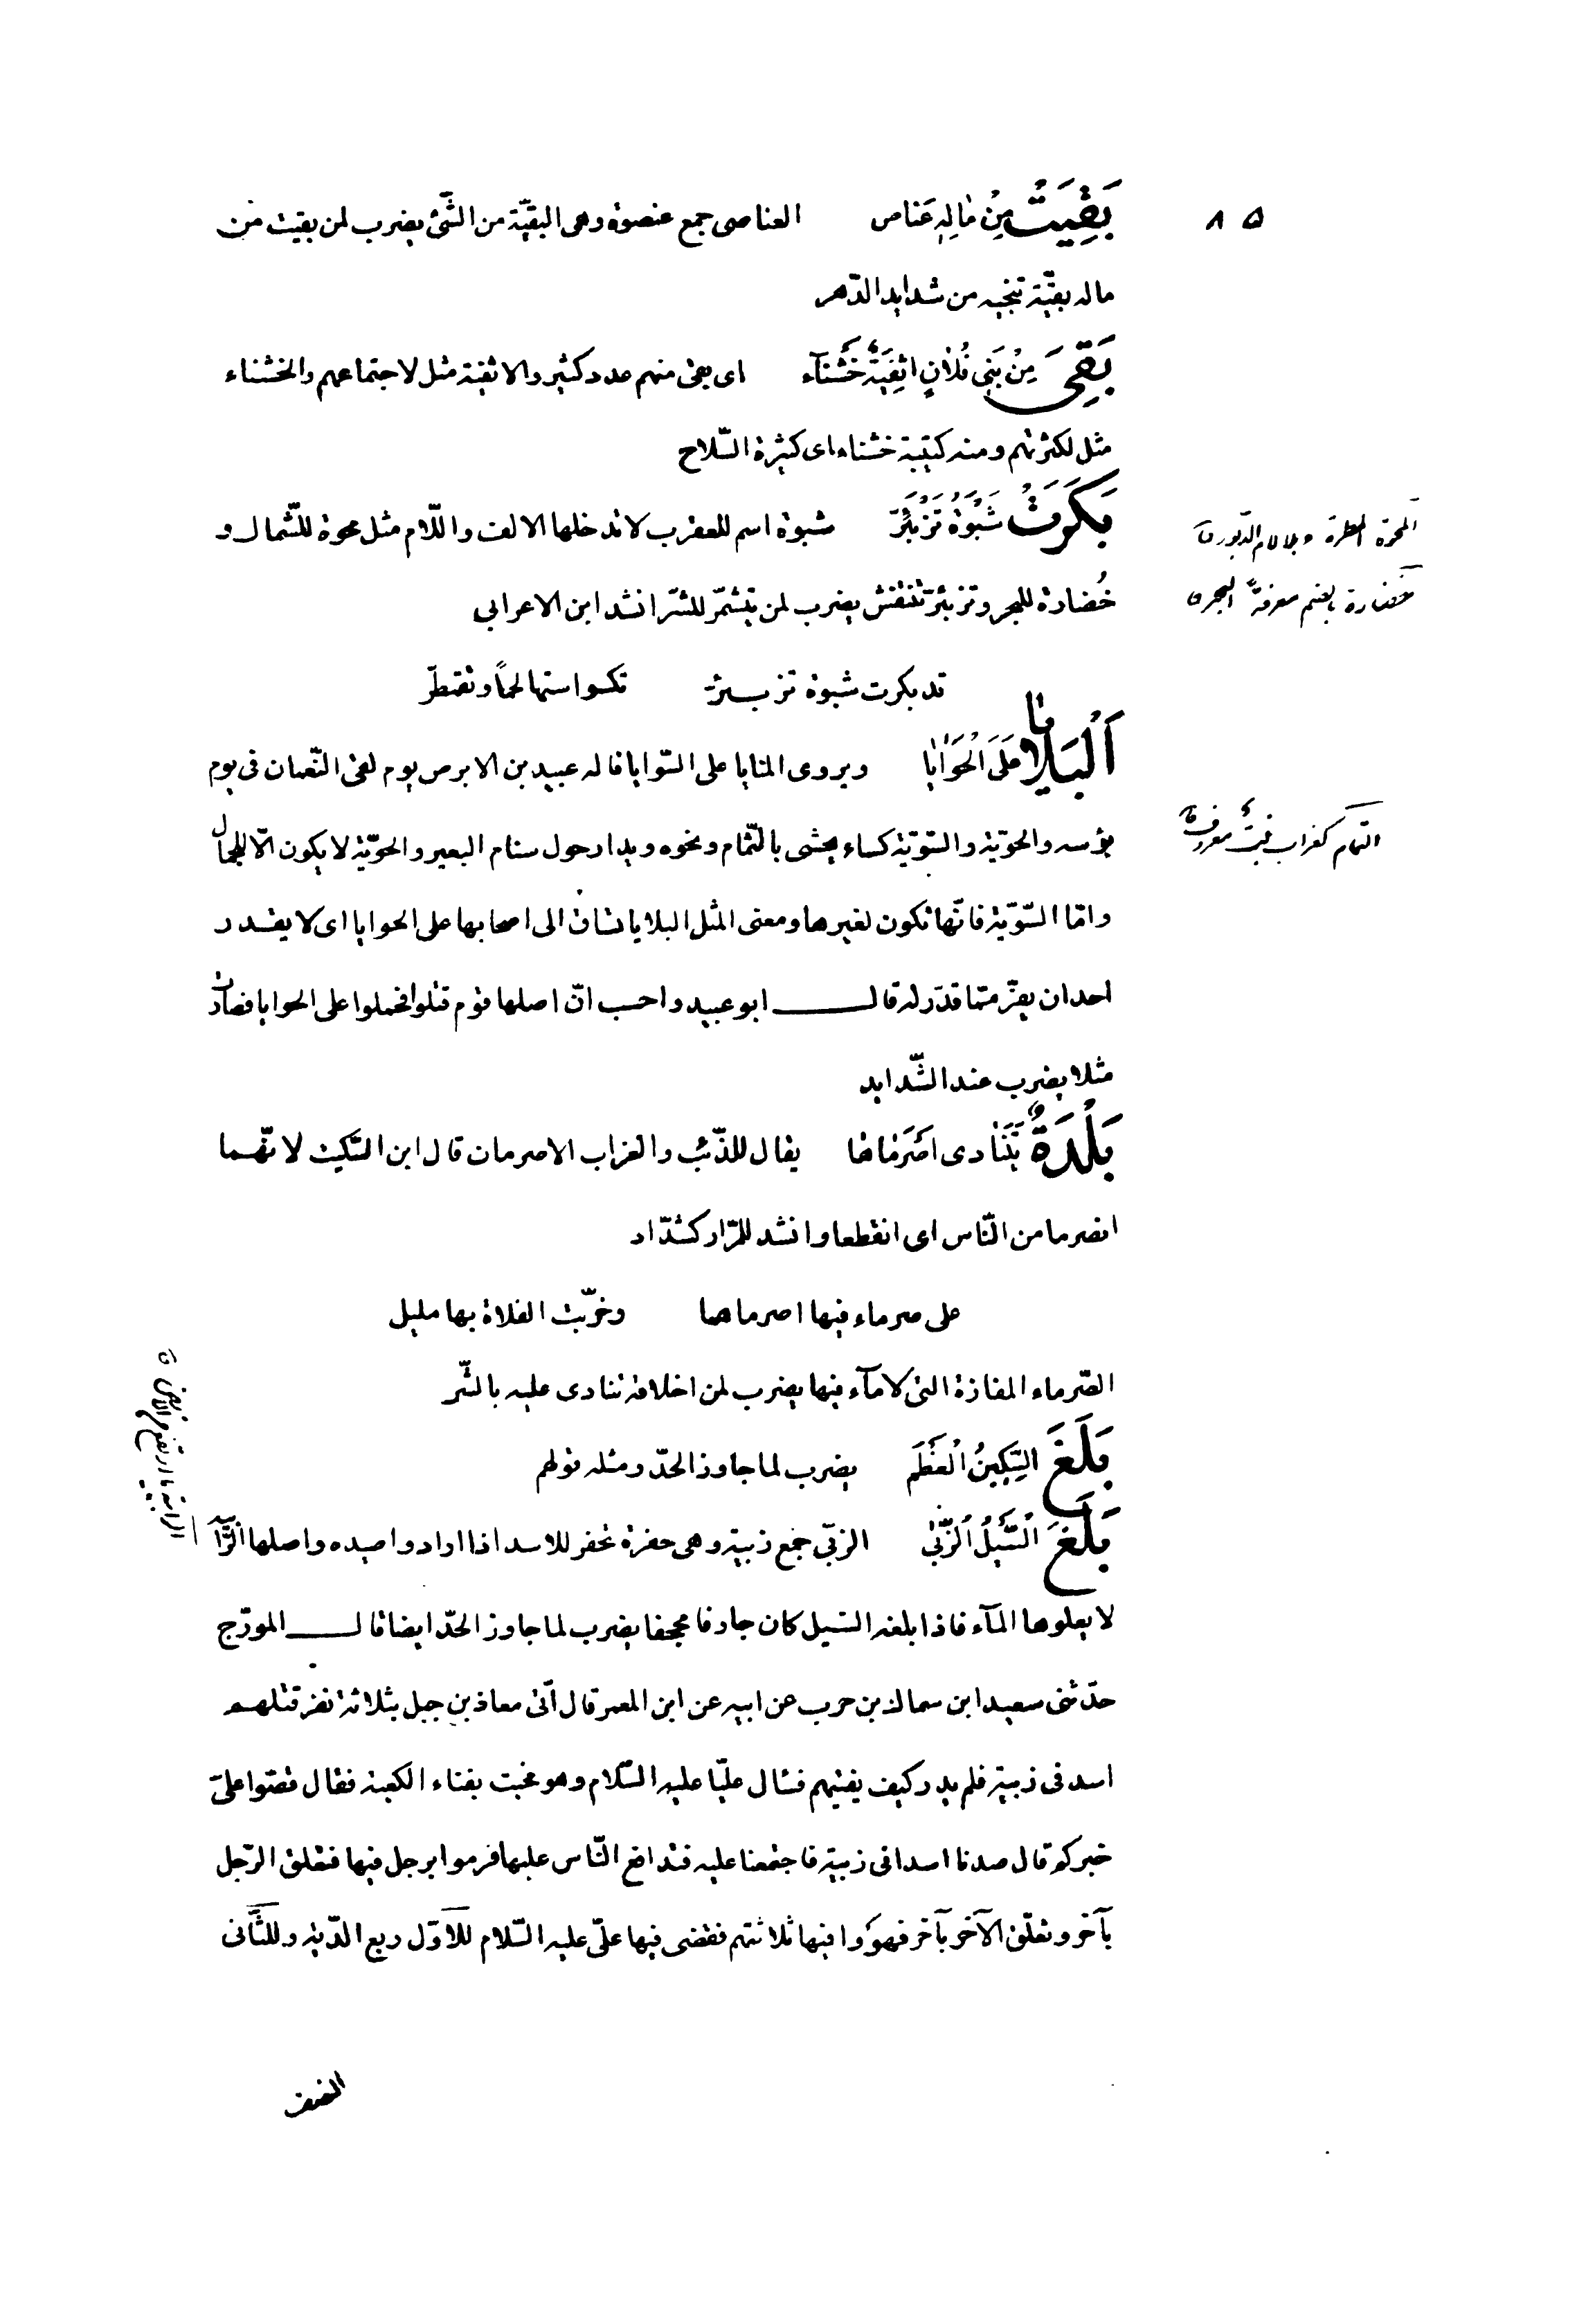 ٨٥
بَقِيَتْ مِنْ مَالِهِ عَنَاص العناصى جمع عنصوة وهى البقيّة من الشّئ يضرب لمن بقيت من
ماله بقيّة تنجيه من شدايد الدّهر
بَقِىَ مِنْ بَنِى فُلَانٍ اثْفِيَةٌ خَشْنَآء اى بقى منهم عدد كثير والاثفية مثل لاجتماعهم والخشناء
مثل لكثرتهم ومنه كتيبة خشناء اى كثيرة السّلاح
بَكَرَتْ شَبْوَةُ تَزْبَئِرّ شبوة اسم للعقرب لا تدخلها الالف واللّام مثل محوة للشّمال و
خُضارة للبحر وتزبئرّ تنتفش يضرب لمن يتشمّر للشّرّ انشد ابن الاعرابي
قد بكرت شبوة تزبئرّ تكسوا ستها لحمًا وتقمطرّ
اَلْبَلَايَا عَلَى الْحَوَايَا ويروى المنايا على السّوايا قاله عبيد بن الابرص يوم لقى النّعمان فى يوم
بؤسه والحويّة والسّويّة كساء يحشى بالثّمام ونحوه ويدار حول سنام البعير والحويّة لا يكون الّا للجمال
وامّا السّويّة فانّها تكون لغيرها ومعنى المثل البلايا تساق الى اصحابها على الحوايا اى لا يقدر
احد ان يفرّ ممّا قدّر له قال ابو عبيد واحسب انّ اصلها قوم قتلوا فحملوا على الحوايا فصارت
مثلا يضرب عند الشّدايد
بَلْدَةٌ يَتَنَادى اصْرَمَاهَا يقال للذّئب والغراب الاصرمان قال ابن السّكيت لانّهما
انصرما من النّاس اى انقطعا وانشد للمرّار كشدّاد
على صرماء فيها اصرماها وخرّيت الفلاة بها مليل
الصّرماء المفازة التى لا مآء فيها يضرب لمن اخلاقه تنادى عليه بالشّر
بَلَغَ السِّكِينُ الْعَظْمَ يضرب لما جاوز الحدّ ومثله قولهم
بَلَغَ السَّيْلُ الزُّبَىٰ الزبىّ جمع زبية وهى حفرة تحفر للاسد اذا ارادوا صيده واصلها الرّابية
لا يعلوها المآء فاذا بلغه السّيل كان جارفا مجحفا يضرب لما جاوز الحدّ ايضا قال المورّج
حدّثنى سعيد ابن سماك بن حرب عن ابيه عن ابن المعمر قال اتى معاذ بن جبل بثلاثة نفر قتلهم
اسد فى زبية فلم يدر كيف يفتيهم فسال عليّا عليه السّلام وهو محتب بفناء الكعبة فقال قصّوا علىّ
خبركم قال صدنا اسدا فى زبية فاجتمعنا عليه فتدافع النّاس عليها فرموا برجل فيها فتعلق الرّجل
بآخر وتعلّق الآخر بآخر فهووا فيها ثلاثتهم فقضى فيها علىّ عليه السّلام للاوّل ربع الدّية وللثّانى
النصف
المحوة المطرة وبلا لام الدّبور ق
خضارة بالضم معرفة البحر ق
الثمام كغراب نبت معروف ق
الرابية ما ارتفع من الارض ق